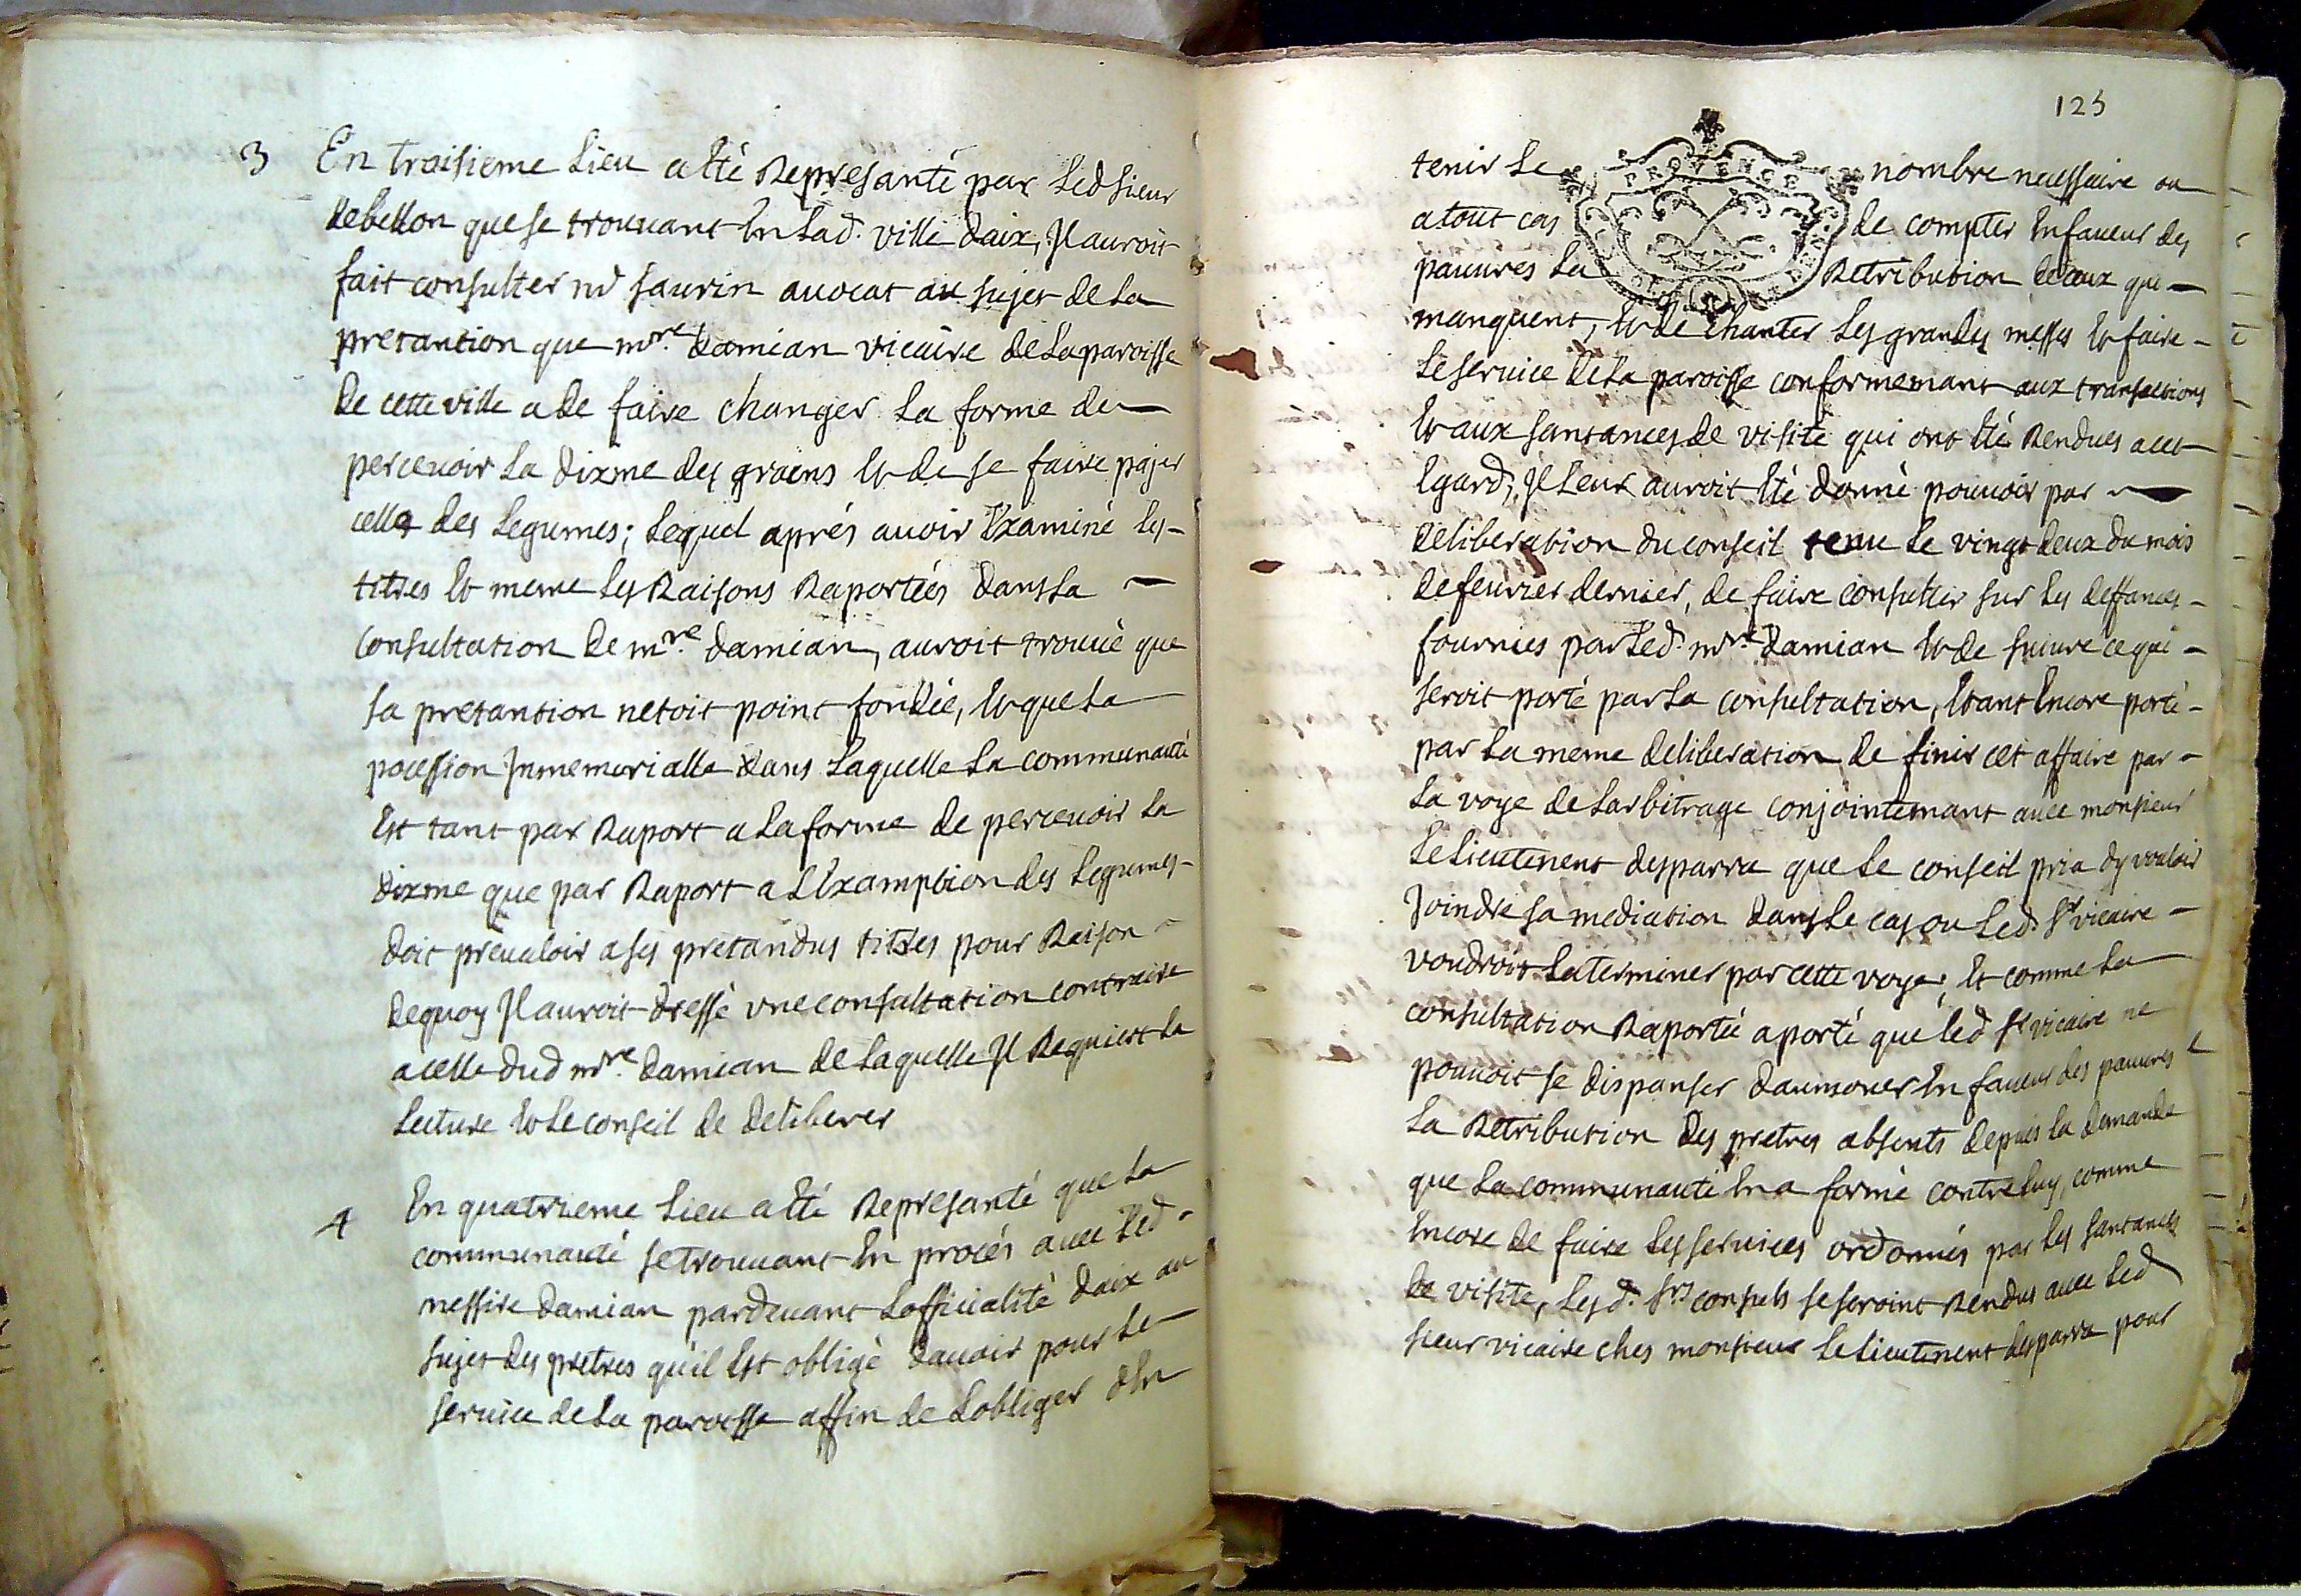 3 En troisieme lieu a été Represanté par led sieur
debellon que se trouuant En lad. ville daix, Jl auroit
fait consulter mr saurin auocat au sujet de la
pretantion que mre. damian vicaire de la paroisse
de cette ville a de faire changer la forme de
perceuoir la dixme des grains Et de se faire pajer
celle des legumes; lequel aprés auoir Examiné les
titres Et meme les Raisons Raportées dans la
Consultation de mre. damian, auroit trouué que
sa pretantion netoit point fondée, Et que la
pocession Jnmemorialle dans laquelle la communauté
Est tant par Raport a la forme de perceuoir la
dixme que par Raport a l'Examption des legumes
doit preualoir a ses pretandus titres pour Raison
dequoy Jl auroit dressé vne consultation contraire
a celle dud mre. damian de laquelle Jl Requiert la
lecture Et le conseil de deliberer
4 En quatrieme lieu a été Represanté que la
communauté se trouuant En procés auec led
messire damian pardeuant l'officialité daix au
sujet des pretres qu'il Est obligé dauoir pour le
seruice de la paroisse affin de lobliger dEn
125
PROVENCE
tenir le nombre necessaire ou
a tout cas de compter En faueur des
pauures la Retribution de ceux qui
manquent, Et de chanter les grandes messes Et faire
le seruice de la paroisse conformemant aux transactions
Et aux santances de visite qui ont été Rendues a cet
Egard, Jl leur auroit été donné pouuoir par
deliberation du conseil tenu le vingt deux du mois
de feurier dernier, de faire consulter sur les deffances
fournies par led. mre. damian Et de suiure ce qui
seroit porté par la consultation, Etant Encore porté
par la meme deliberation de finir cet affaire par
la voye de larbitrage conjointemant auec monsieur
le lieutenent desparra que le conseil pria dy vouloir
Joindre sa mediation dans le cas ou led. sr vicaire
voudroit la terminer par cette voye, Et comme la
consultation Raportée a porté que led sr vicaire ne
pouuoit se dispanser daumoner En faueur des pauures
la Retribution des pretres absents depuis la demande
que la communauté En a formé contre luy, comme
Encore de faire les seruices ordonnés par les santances
de visite, les d. srs consuls se seroint Rendus auec led
sieur vicaire ches monsieur le lieutenent desparra pour